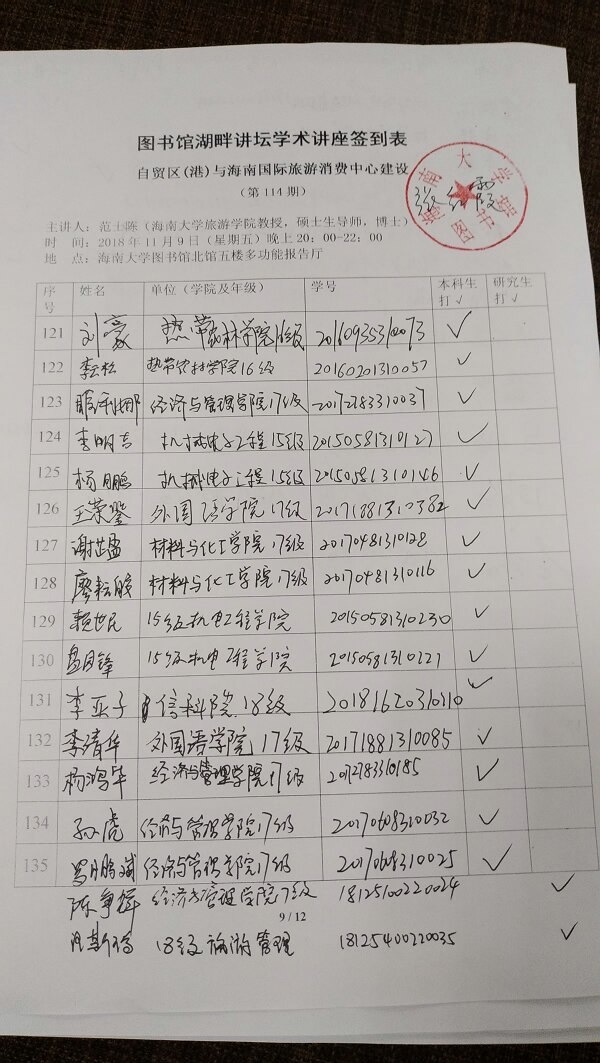 图书馆湖畔讲坛学术讲座签到表
自贸区(港)与海南国际旅游消费中心建设
（第114期）
主讲人：范士陈（海南大学旅游学院教授，硕士生导师，博士）
时 间：2018年11月9日（星期五）晚上20：00-22：00
地 点：海南大学图书馆北馆五楼多功能报告厅
序号 姓名 单位（学院及年级） 学号 本科生打√ 研究生打√
121 刘豪 热带农林学院16级 √
122 李松 热带农林学院16级 20160201310057 √
123 经济与管理学院17级 20172783310037 √
124 李明吉 机械电子工程15级 20150581310127 √
125 杨鹏 机械电子工程15级 20150581310146 √
126 王荣鉴 外国语学院17级 20171881310382 √
127 谢芷盈 材料与化工学院17级 20170481310128 √
128 廖耘 材料与化工学院17级 20170481310116 √
129 赖世民 15级机电工程学院 20150581310230 √
130 15级机电工程学院 20150581310227 √
131 李亚子 信科院 18级 20181620310110 √
132 李清华 外国语学院17级 20171881310085 √
133 杨鸿华 经济与管理学院17级 20172783310185 √
134 孙虎 经济与管理学院17级 20170608310032 √
135 罗鹏斌 经济与管理学院17级 20170608310025 √
陈争辉 经济与管理学院17级 18125100220024 √
9 / 12
18级 旅游管理 18125400220035 √